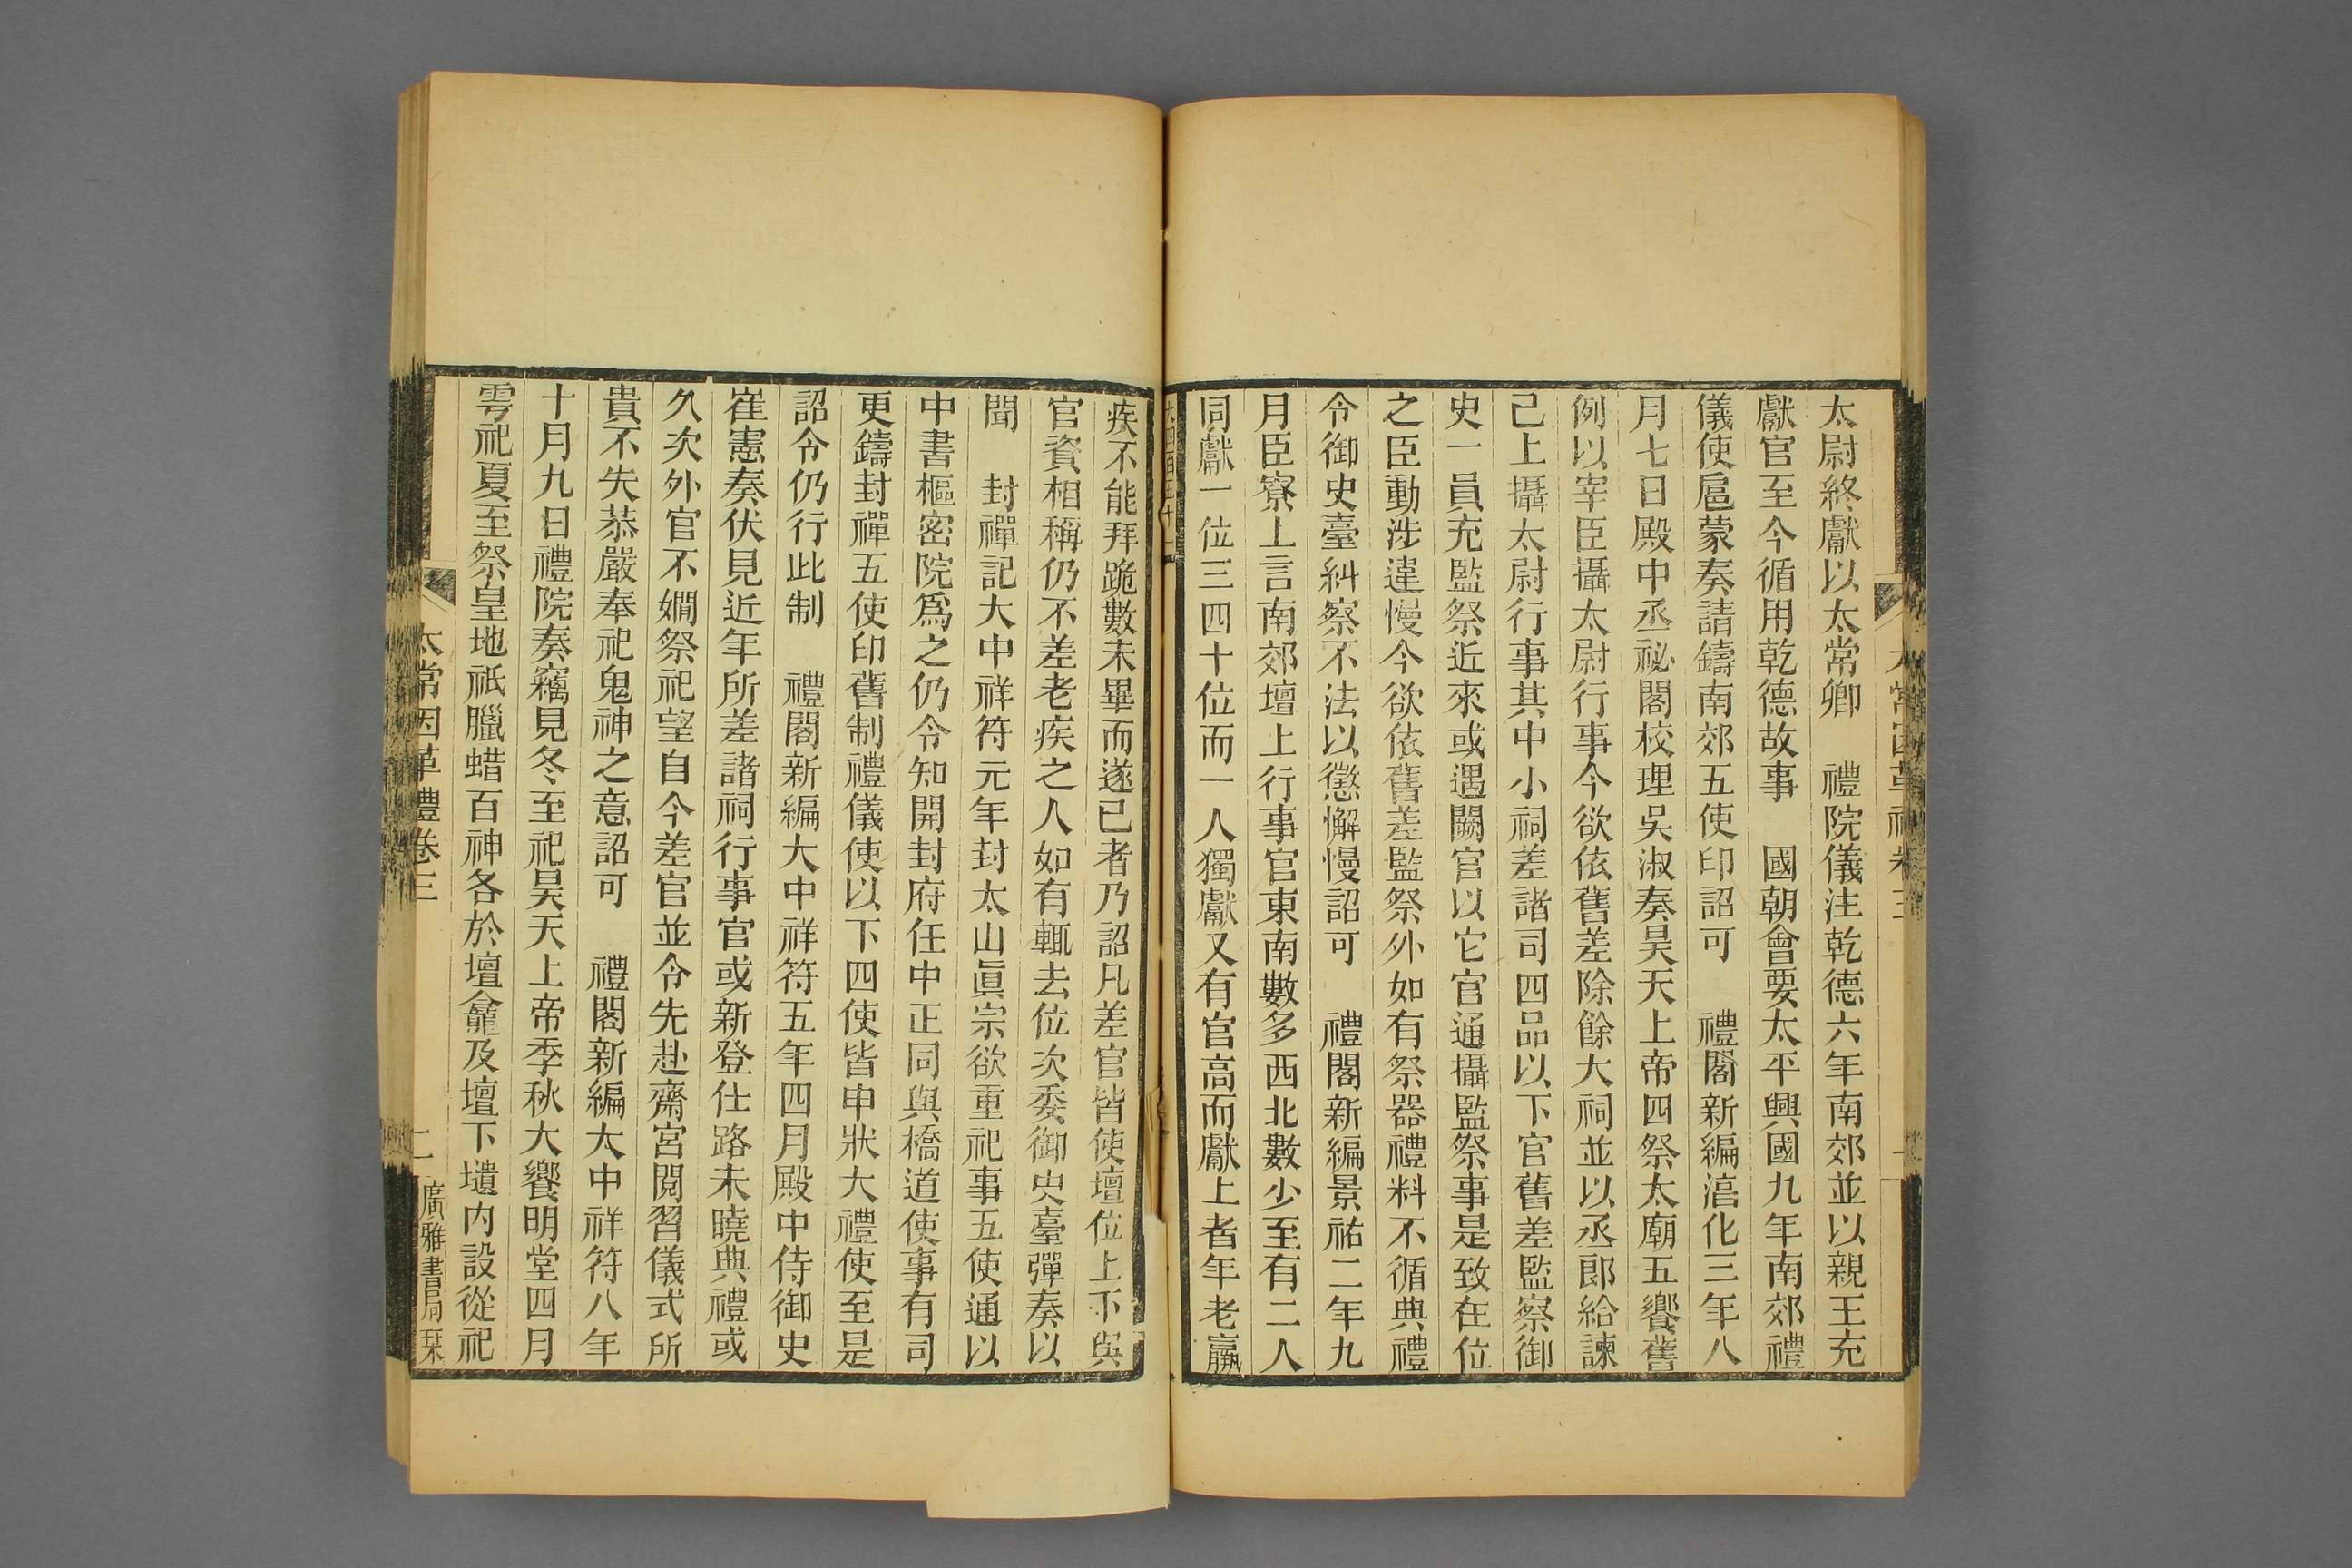 太尉終獻以太常卿　禮院儀注乾德六年南郊並以親王充
獻官至今循用乾德故事　國朝會要太平興國九年南郊禮
儀使扈蒙奏請鑄南郊五使印詔可　禮閣新編淳化三年八
月七日殿中丞祕閣校理吳淑奏昊天上帝四祭太廟五饗舊
例以宰臣攝太尉行事今欲依舊差除餘大祠並以丞郎給諫
已上攝太尉行事其中小祠差諸司四品以下官舊差監察御
史一員充監祭近來或遇闕官以它官通攝監祭事是致在位
之臣動涉違慢今欲依舊差監祭外如有祭器禮料不循典禮
令御史臺糾察不法以懲懈慢詔可　禮閣新編景祐二年九
月臣寮上言南郊壇上行事官東南數多西北數少至有二人
同獻一位三四十位而一人獨獻又有官高而獻上者年老羸
疾不能拜跪數未畢而遂已者乃詔凡差官皆使壇位上下與
官資相稱仍不差老疾之人如有輒去位次委御史臺彈奏以
聞　封禪記大中祥符元年封太山眞宗欲重祀事五使通以
中書樞密院爲之仍令知開封府任中正同與橋道使事有司
更鑄封禪五使印舊制禮儀使以下四使皆申狀大禮使至是
詔令仍行此制　禮閣新編大中祥符五年四月殿中侍御史
崔憲奏伏見近年所差諸祠行事官或新登仕路未曉典禮或
久次外官不嫺祭祀望自今差官並令先赴齋宮閱習儀式所
貴不失恭嚴奉祀鬼神之意詔可　禮閣新編大中祥符八年
十月九日禮院奏竊見冬至祀昊天上帝季秋大饗明堂四月
雩祀夏至祭皇地祇臘蜡百神各於壇龕及壇下壝內設從祀
太常因革禮卷三
二
廣雅書局栞